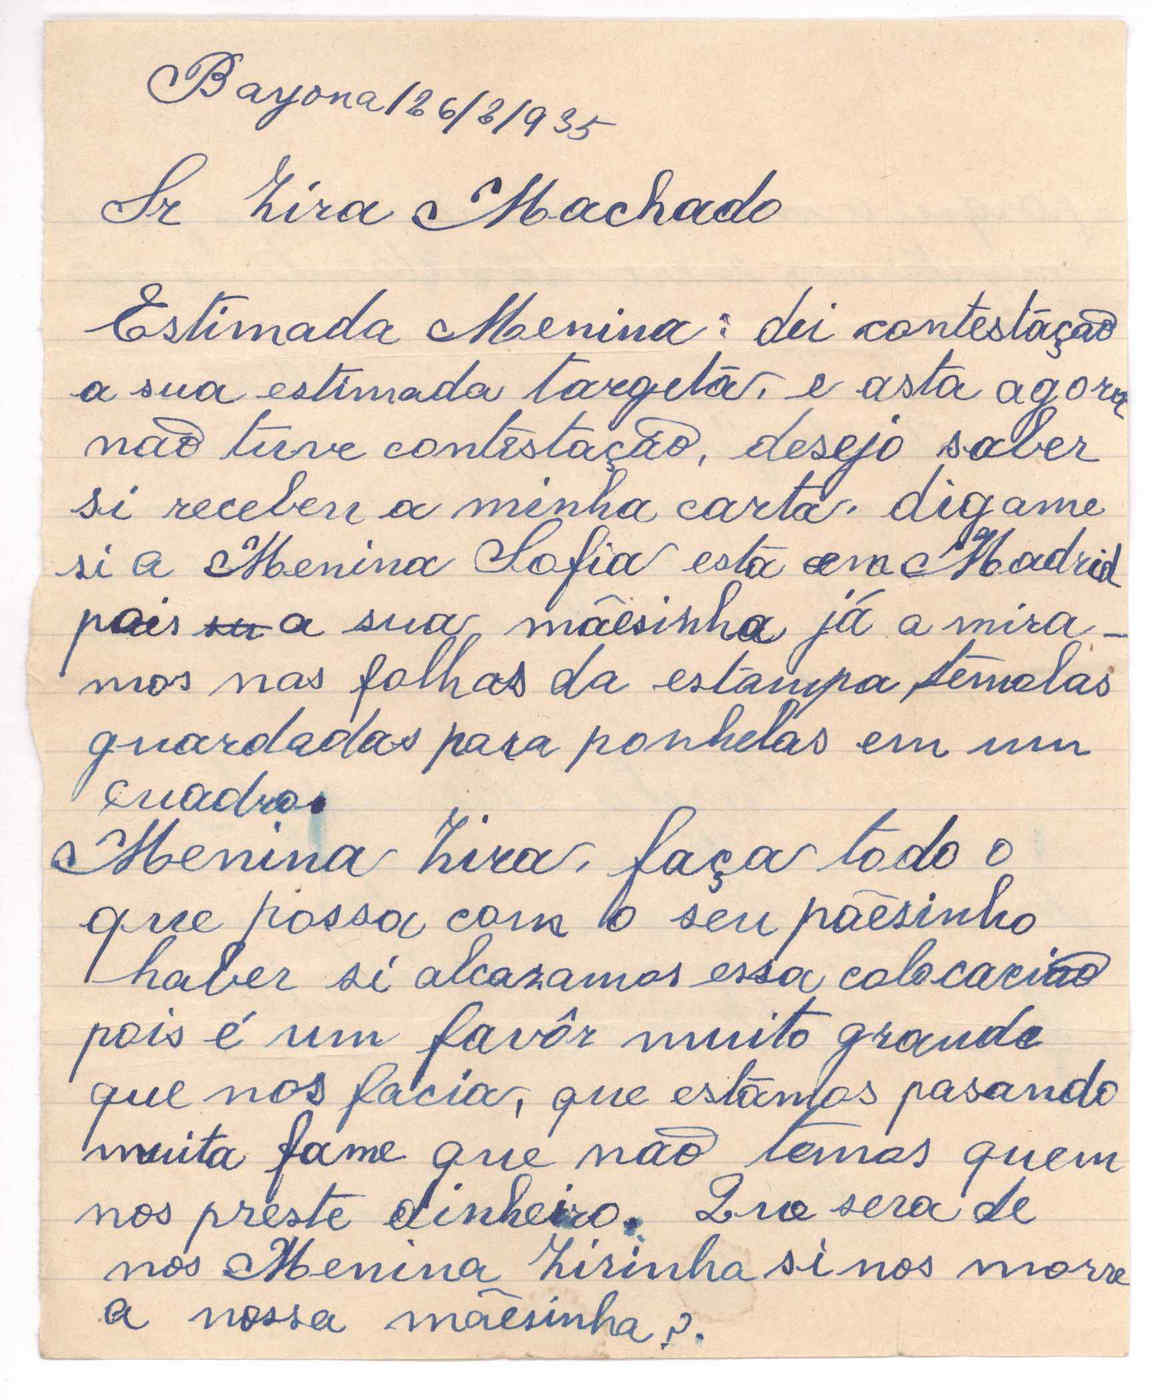 Bayona/26/2/935
Sr Zira Machado
Estimada Menina: dei contestação
a sua estimada targeta, e asta agora
não tuve contestação, desejo saber
si receben a minha carta. digame
si a Menina Sofia está em Madrid
pois su a sua mãesinha já a mira-
mos nas folhas da estampa têmolas
guardadas para ponhelas em un
cuadro.
Menina Zira, faça todo o
que possa com o seu pãesinho
haber si alcazamos essa colocacião
pois é um favôr muito grande
que nos facia, que estamos pasando
muita fame que não temos quem
nos preste dinheiro. Que sera de
nos Menina Zirinha si nos morre
a nossa mãesinha?.